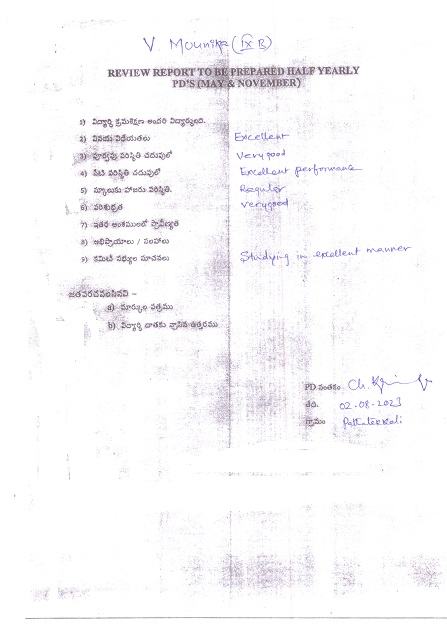 V. Mounika (IX B)
REVIEW REPORT TO BE PREPARED HALF YEARLY
PD'S (MAY & NOVEMBER)
1) విద్యార్థి క్రమశిక్షణ అందరి విద్యార్థుంది.
2) వినయ విధేయతలు Excellent
3) పూర్వపు పరిస్థితి చదువులో Very good
4) నేటి పరిస్థితి చదువులో Excellent performance
5) స్కూలుకు హాజరు పరిస్థితి. Regular
6) పరిశుభ్రత very good
7) ఇతర అంశములలో ప్రావీణ్యత
8) అభిప్రాయాలు / సలహాలు
9) కమిటీ సభ్యుల సూచనలు Studying in excellent manner
జతపరచవలసినవి –
a) మార్కుల పత్రము
b) విద్యార్థి దాతకు వ్రాసిన ఉత్తరము
PD సంతకం Ch.
తేది. 02-08-2023
గ్రామం